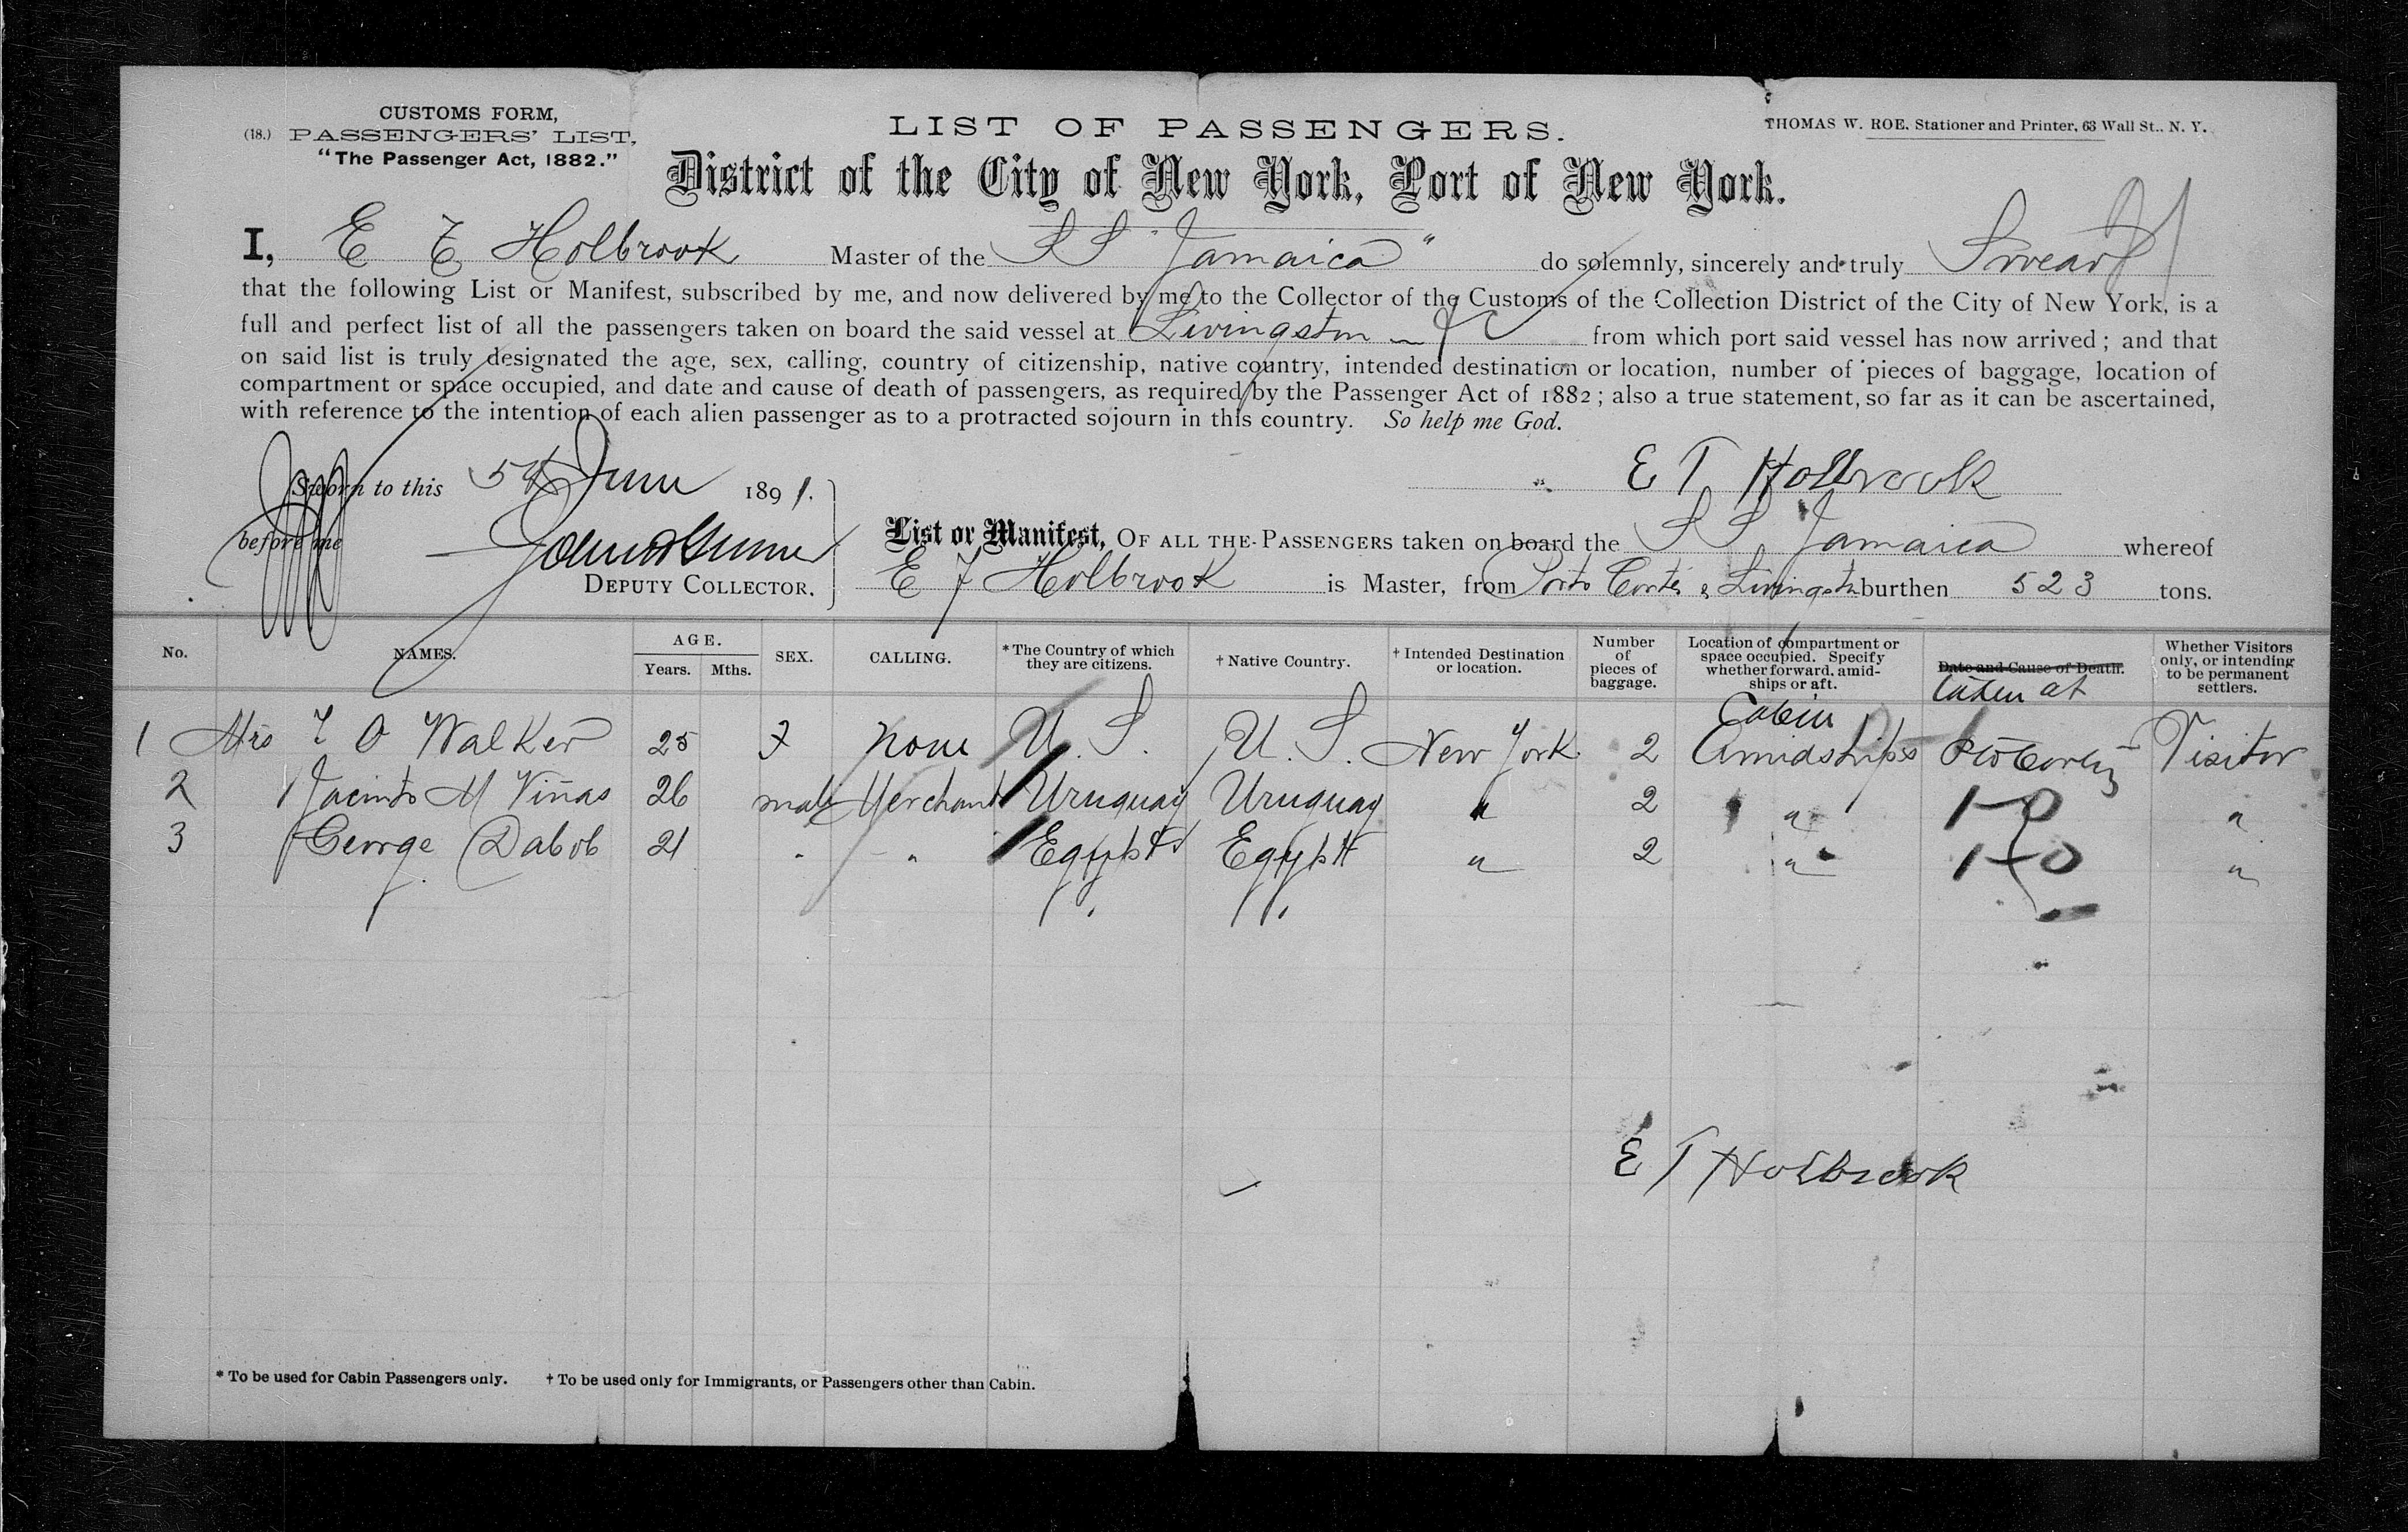 CUSTOMS FORM,
(18.) PASSENGERS' LIST,
"The Passenger Act, 1882."
LIST OF PASSENGERS.
THOMAS W. ROE, Stationer and Printer, 63 Wall St., N. Y.
District of the City of New York, Port of New York.
I, E T Holbrook Master of the S S "Jamaica" do solemnly, sincerely and truly Swear
that the following List or Manifest, subscribed by me, and now delivered by me to the Collector of the Customs of the Collection District of the City of New York, is a
full and perfect list of all the passengers taken on board the said vessel at Livingston &c from which port said vessel has now arrived; and that
on said list is truly designated the age, sex, calling, country of citizenship, native country, intended destination or location, number of pieces of baggage, location of
compartment or space occupied, and date and cause of death of passengers, as required by the Passenger Act of 1882; also a true statement, so far as it can be ascertained,
with reference to the intention of each alien passenger as to a protracted sojourn in this country. So help me God.
Sworn to this 5th June 1891.
E T Holbrook
before me
DEPUTY COLLECTOR.
List or Manifest, OF ALL THE PASSENGERS taken on board the S S Jamaica whereof
E T Holbrook is Master, from Porto Cortés & Livingston burthen 523 tons.
No. NAMES. AGE. Years. Mths. SEX. CALLING. *The Country of which they are citizens. †Native Country. †Intended Destination or location. Number of pieces of baggage. Location of compartment or space occupied. Specify whether forward, amidships or aft. Date and Cause of Death. taken at Whether Visitors only, or intending to be permanent settlers.
Cabin
1 Mrs T O Walker 25 F None U. S. U. S. New York 2 Amidships Pto Cortez Visitor
2 Jacinto M Viñas 26 male Merchant Uruguay Uruguay " 2 " "
3 George Dabob 21 " " Egypt Egypt " 2 " "
E T Holbrook
* To be used for Cabin Passengers only. † To be used only for Immigrants, or Passengers other than Cabin.